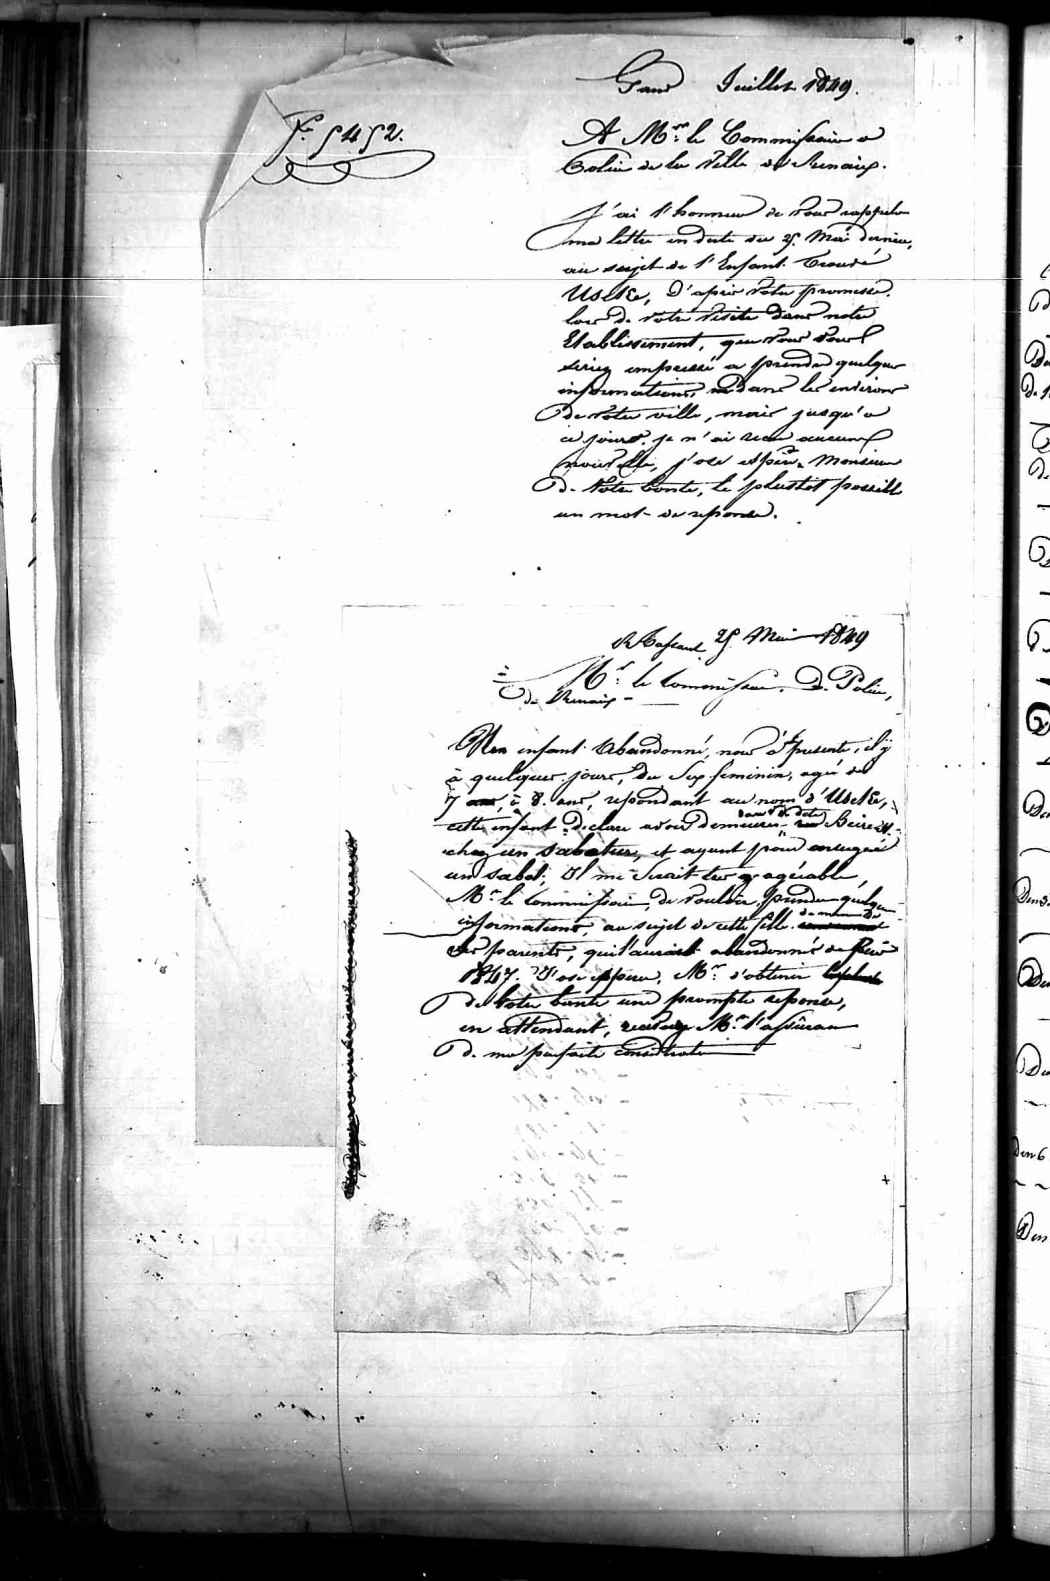 Gand Juillet 1849.
Fo. 5452.
A Mr. le Commissaire de
Police de la Ville de Renaix.
J'ai l'honneur de vous rappeler
ma lettre en date du 25 Mai dernier,
au sujet de l'Enfant Trouvé
Uselke, D'après votre promesse
lors de votre visite dans notre
Etablissement, que vous vous
seriez empressé a prendre quelque
informations dans les environs
de votre ville, mais jusqu'a
ce jour, je n'ai recu aucune
nouvelle, j'ose espérer Monsieur
de Votre bonté, le plustot possible
un mot de reponse.
25 Mai 1849
à Mr. le Commissaire De Police,
de Renaix
Un enfant Abandonné, nous a presenté, il y
à quelques jours, Du Sex feminin, agé de
7 à 8 ans, repondant au nom d'Uselke,
cette enfant declare avoir demeurer
chez un sabotier, et ayant pour enseigne
un sabot; Il me Serait tres agréable,
Mr. le Commissaire, de vouloir prendre quelque
informations, au sujet de cette fille de meme de
ses parents, qui l'aurait abandonné
1847. J'ose espérer, Mr. d'obtenir
de Votre bonté une prompte reponse,
en attendant, recevez Mr. l'assurance
de ma parfaite consideration